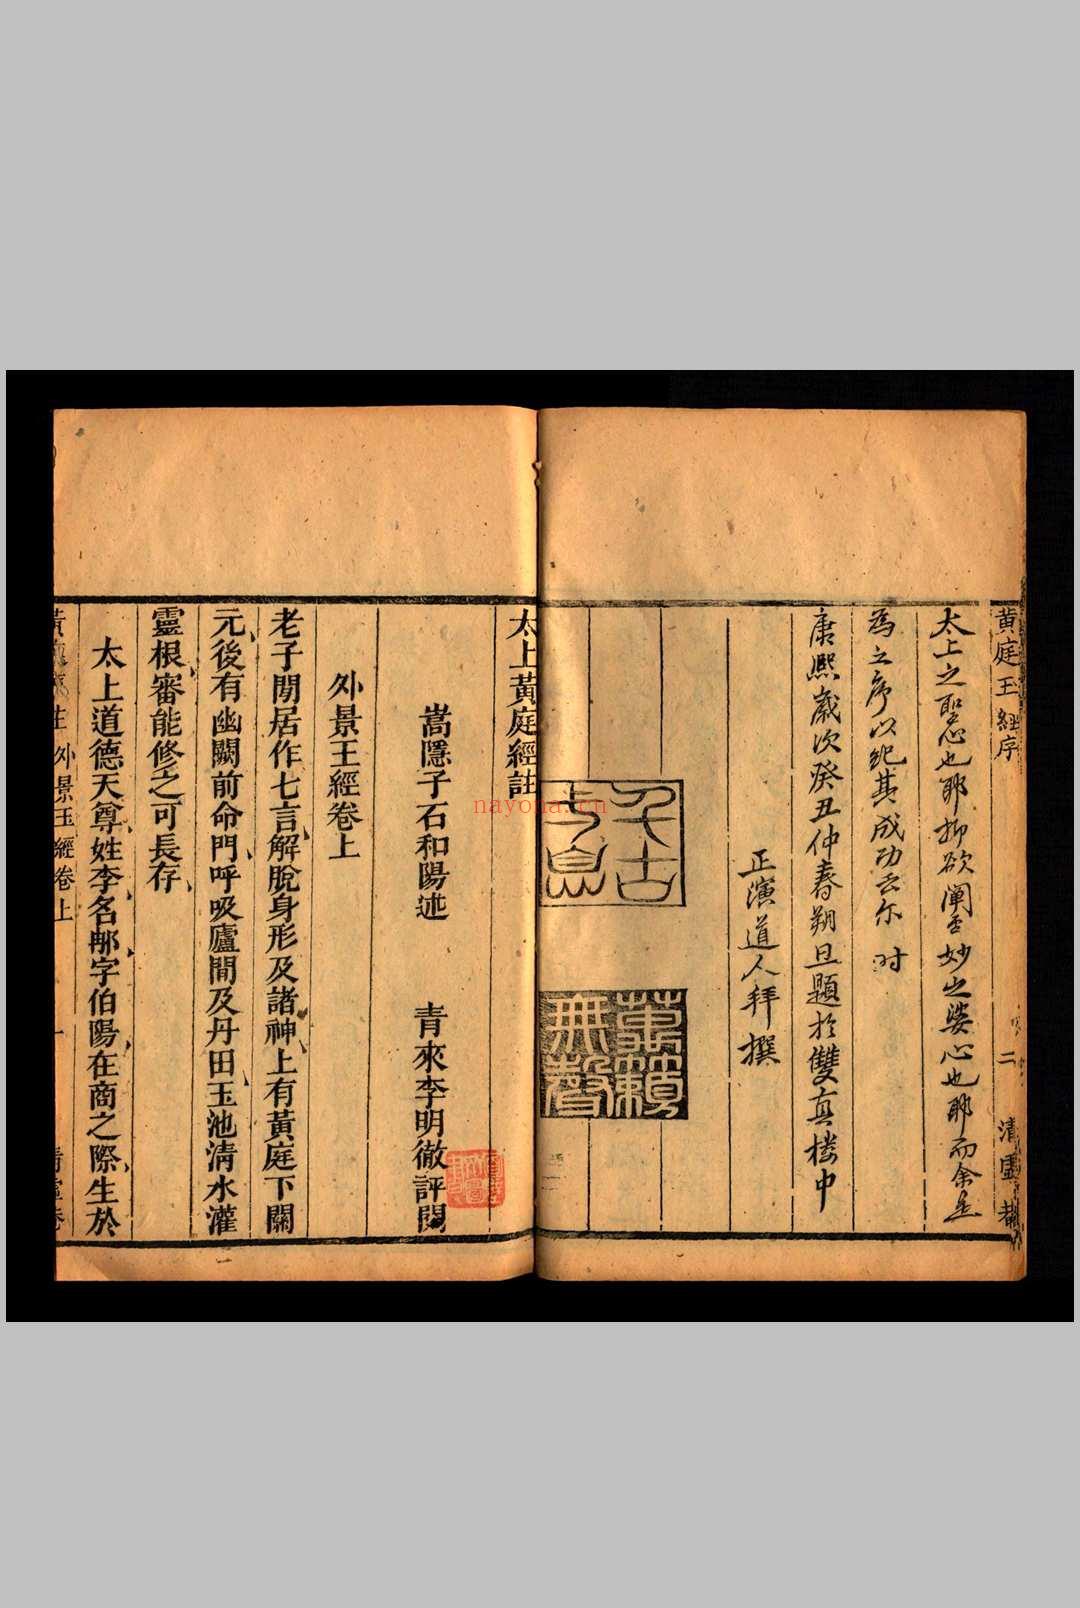 黄庭玉經序
二
清虛
太上之聖心也耶抑欲闡玄妙之婆心也耶而余是
為之序以紀其成功云尔时
康熙歲次癸丑仲春朔旦題於雙真樓中
正演道人拜撰
萬籟無聲
太上黃庭經註
嵩隱子石和陽述 青來李明徹評閱
外景玉經卷上
老子閒居作七言解脫身形及諸神上有黃庭下關
元後有幽闕前命門呼吸廬間及丹田玉池清水灌
靈根審能修之可長存
太上道德天尊姓李名耼字伯陽在商之際生於
外景玉經卷上
一
nayona.cn